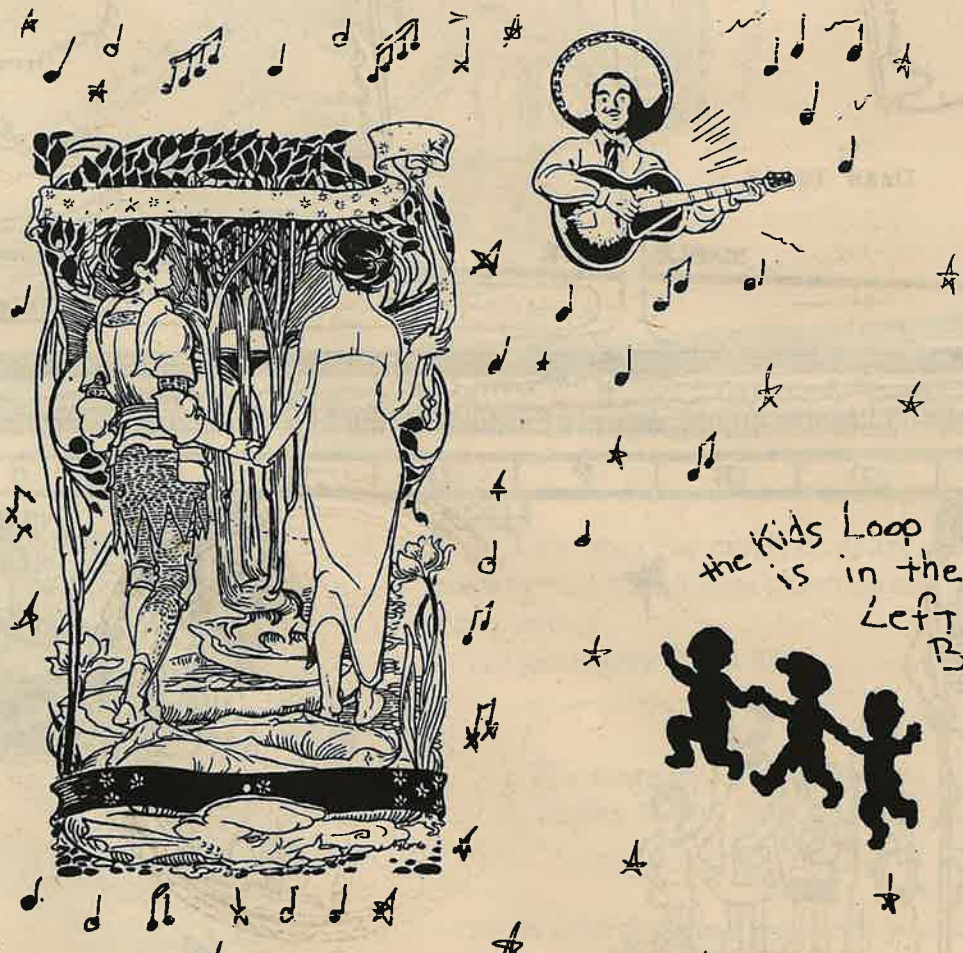 the Kids Loop
is in the
Left
B